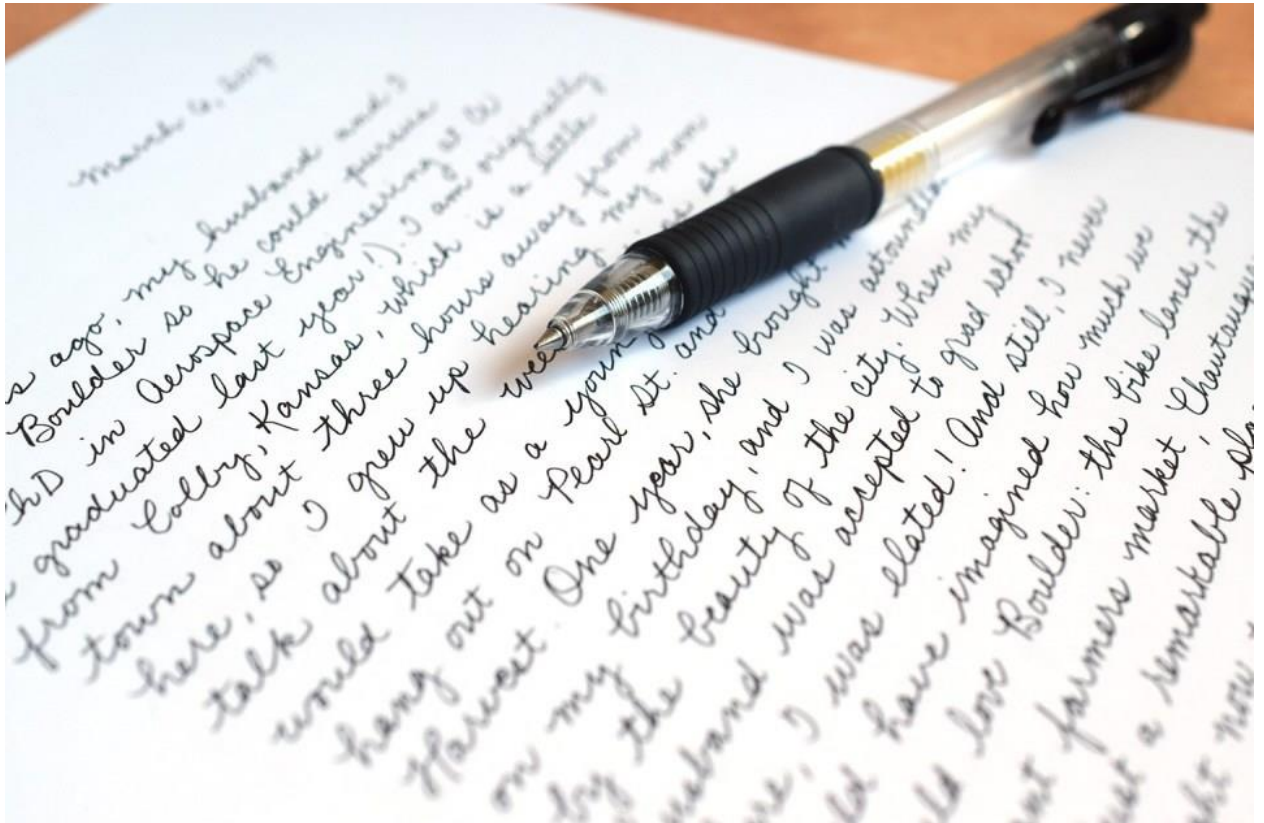 March 6,
ago, my husband and I
Boulder so he could pursue
in Aerospace Engineering at CU
graduated last year!). I am originally
from Colby, Kansas, which is a little
town about three hours away from
here, so I grew up hearing my mom
talk about the she
would take as a
hang out on Pearl St. and
Harvest. One year, she brought
on my birthday, and I was
by the beauty of the city. When my
husband was accepted to grad school
I was elated! And still, I never
have imagined how much we
love Boulder: the bike lanes, the
farmers market, Chautauqua
a remarkable
now